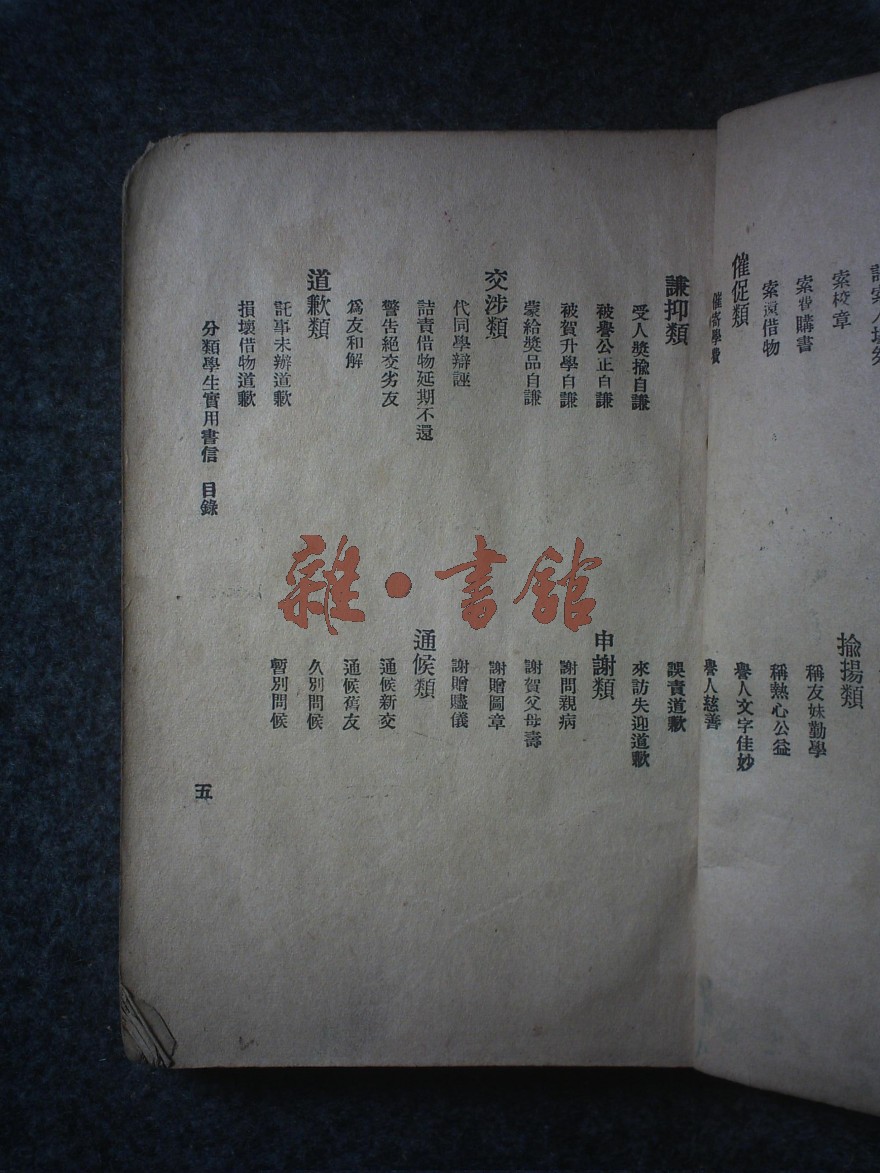 索校章
購書
索還借物
催促類
學費
揄揚類
稱友妹勤學
稱熱心公益
譽人文字佳妙
譽人慈善
謙抑類
受人獎揄自謙
被譽公正自謙
被賀升學自謙
蒙給獎品自謙
交涉類
代同學辯誣
詰責借物延期不還
警告絕交劣友
爲友和解
道歉類
託事未辦道歉
損壞借物道歉
誤責道歉
來訪失迎道歉
申謝類
謝問親病
謝賀父母壽
謝贈圖章
謝贈贐儀
通候類
通候新交
通候舊友
久別問候
暫別問候
分類學生實用書信 目錄
五
雜·書館